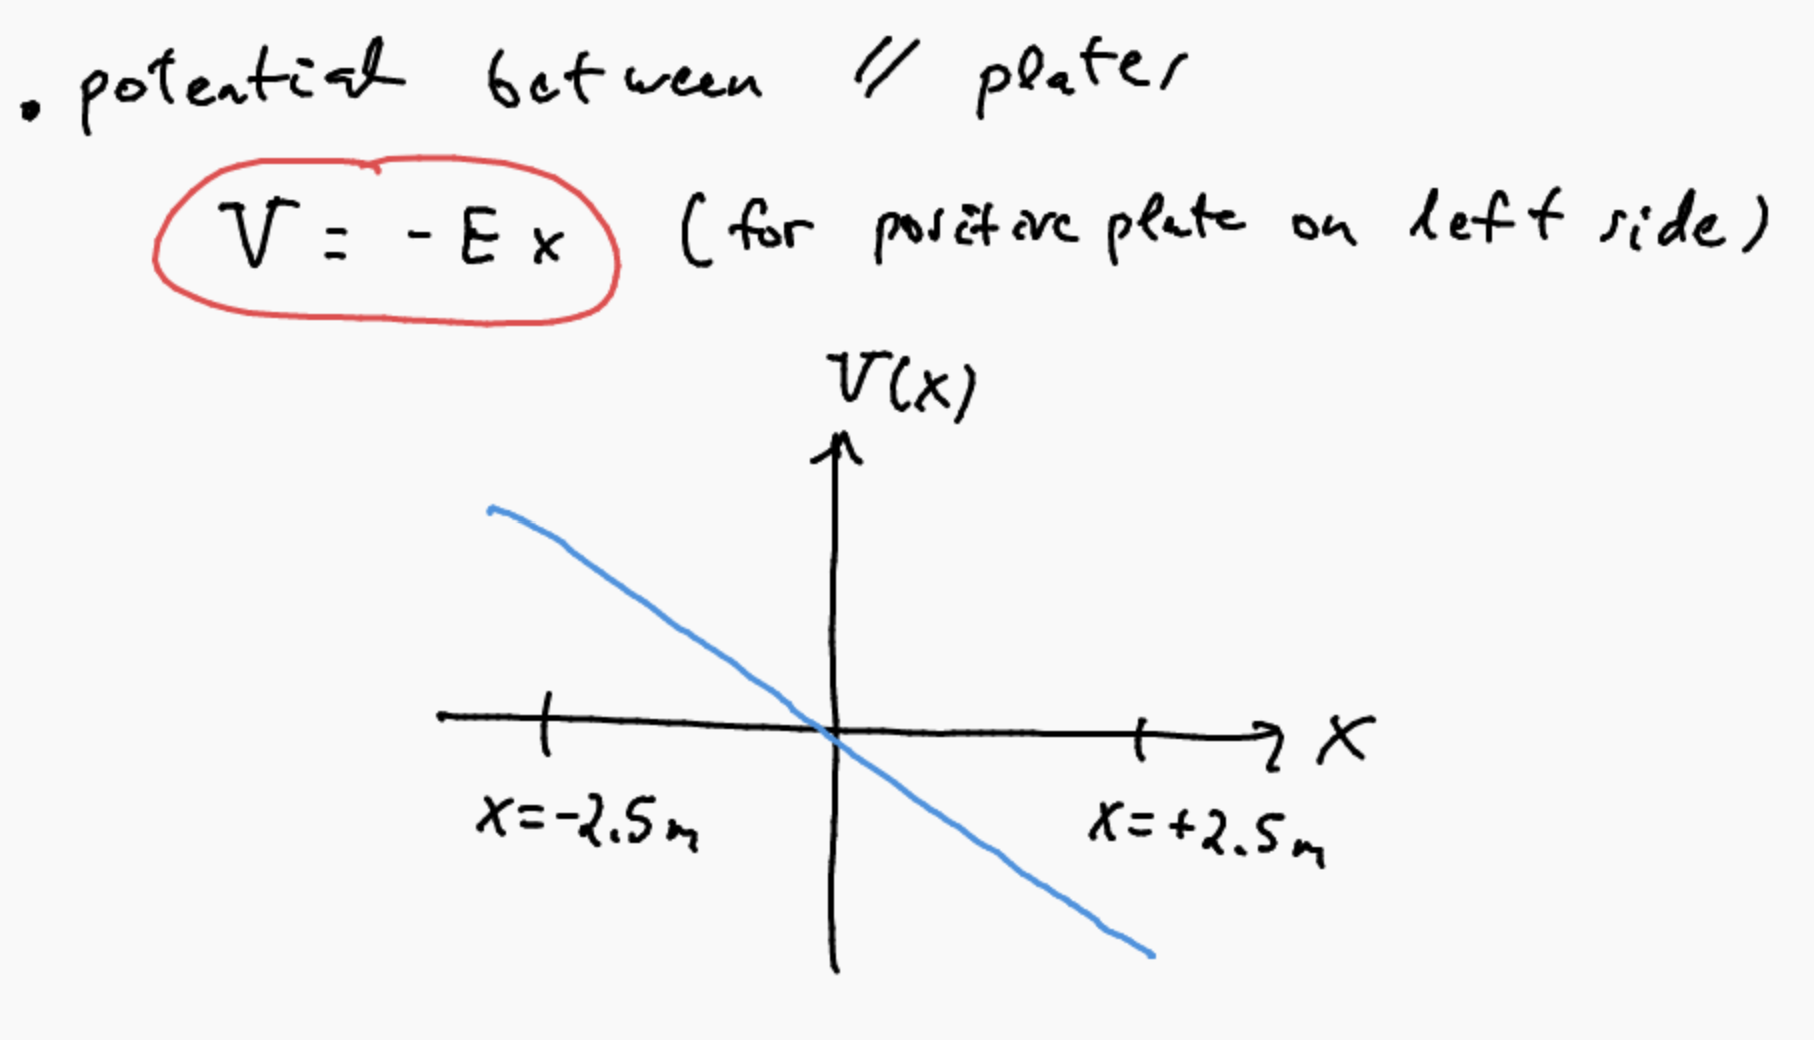 • potential between // plates
V = - E x (for positive plate on left side)
V(x)
X
x=-2.5m
x=+2.5m